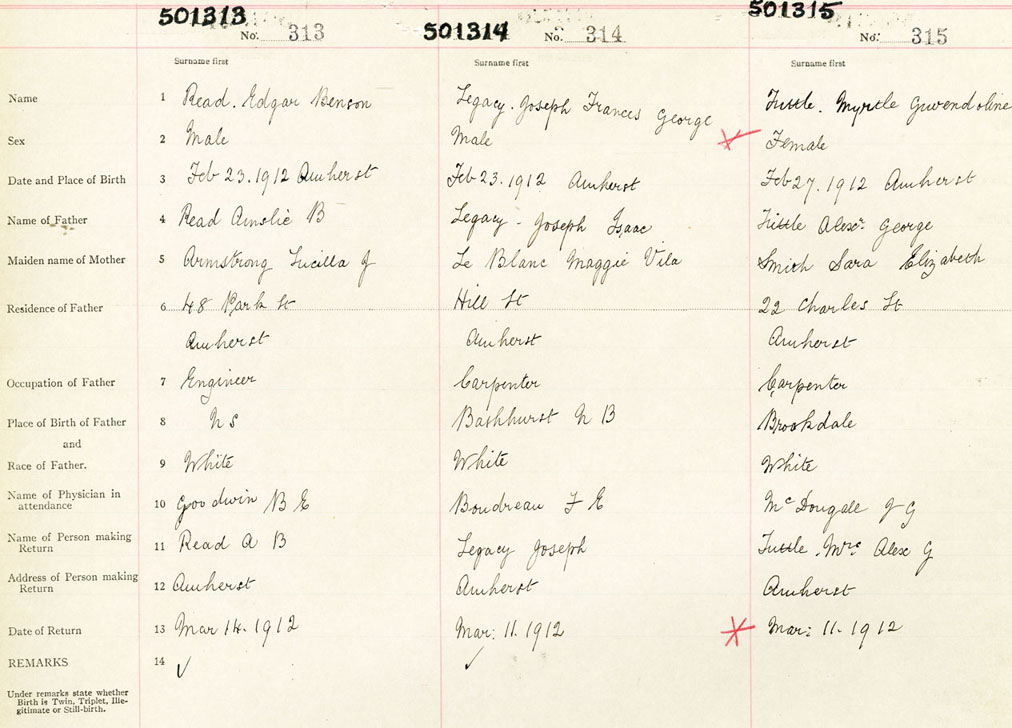 501313 501314 501315
No. 313 No. 314 No. 315
Surname first Surname first Surname first
Name 1 Read. Edgar Benson Legacy. Joseph Frances George Tuttle. Myrtle Gwendoline
Sex 2 Male Male Female
Date and Place of Birth 3 Feb 23.1912 Amherst Feb 23.1912 Amherst Feb 27.1912 Amherst
Name of Father 4 Read Ainslie B Legacy - Joseph Isaac Tuttle Alexr. George
Maiden name of Mother 5 Armstrong Lucilla J Le Blanc Maggie Vila Smith Sara Elizabeth
Residence of Father 6 48 Park St Hill St 22 Charles St
Amherst Amherst Amherst
Occupation of Father 7 Engineer Carpenter Carpenter
Place of Birth of Father 8 N S Bathhurst N B Brookdale
and
Race of Father. 9 White White White
Name of Physician in attendance 10 Goodwin B E Boudreau F E McDougale J G
Name of Person making Return 11 Read A B Legacy Joseph Tuttle. Mrs Alex G
Address of Person making Return 12 Amherst Amherst Amherst
Date of Return 13 Mar 14.1912 Mar: 11.1912 Mar: 11-1912
REMARKS 14
Under remarks state whether
Birth is Twin, Triplet, Ille-
gitimate or Still-birth.